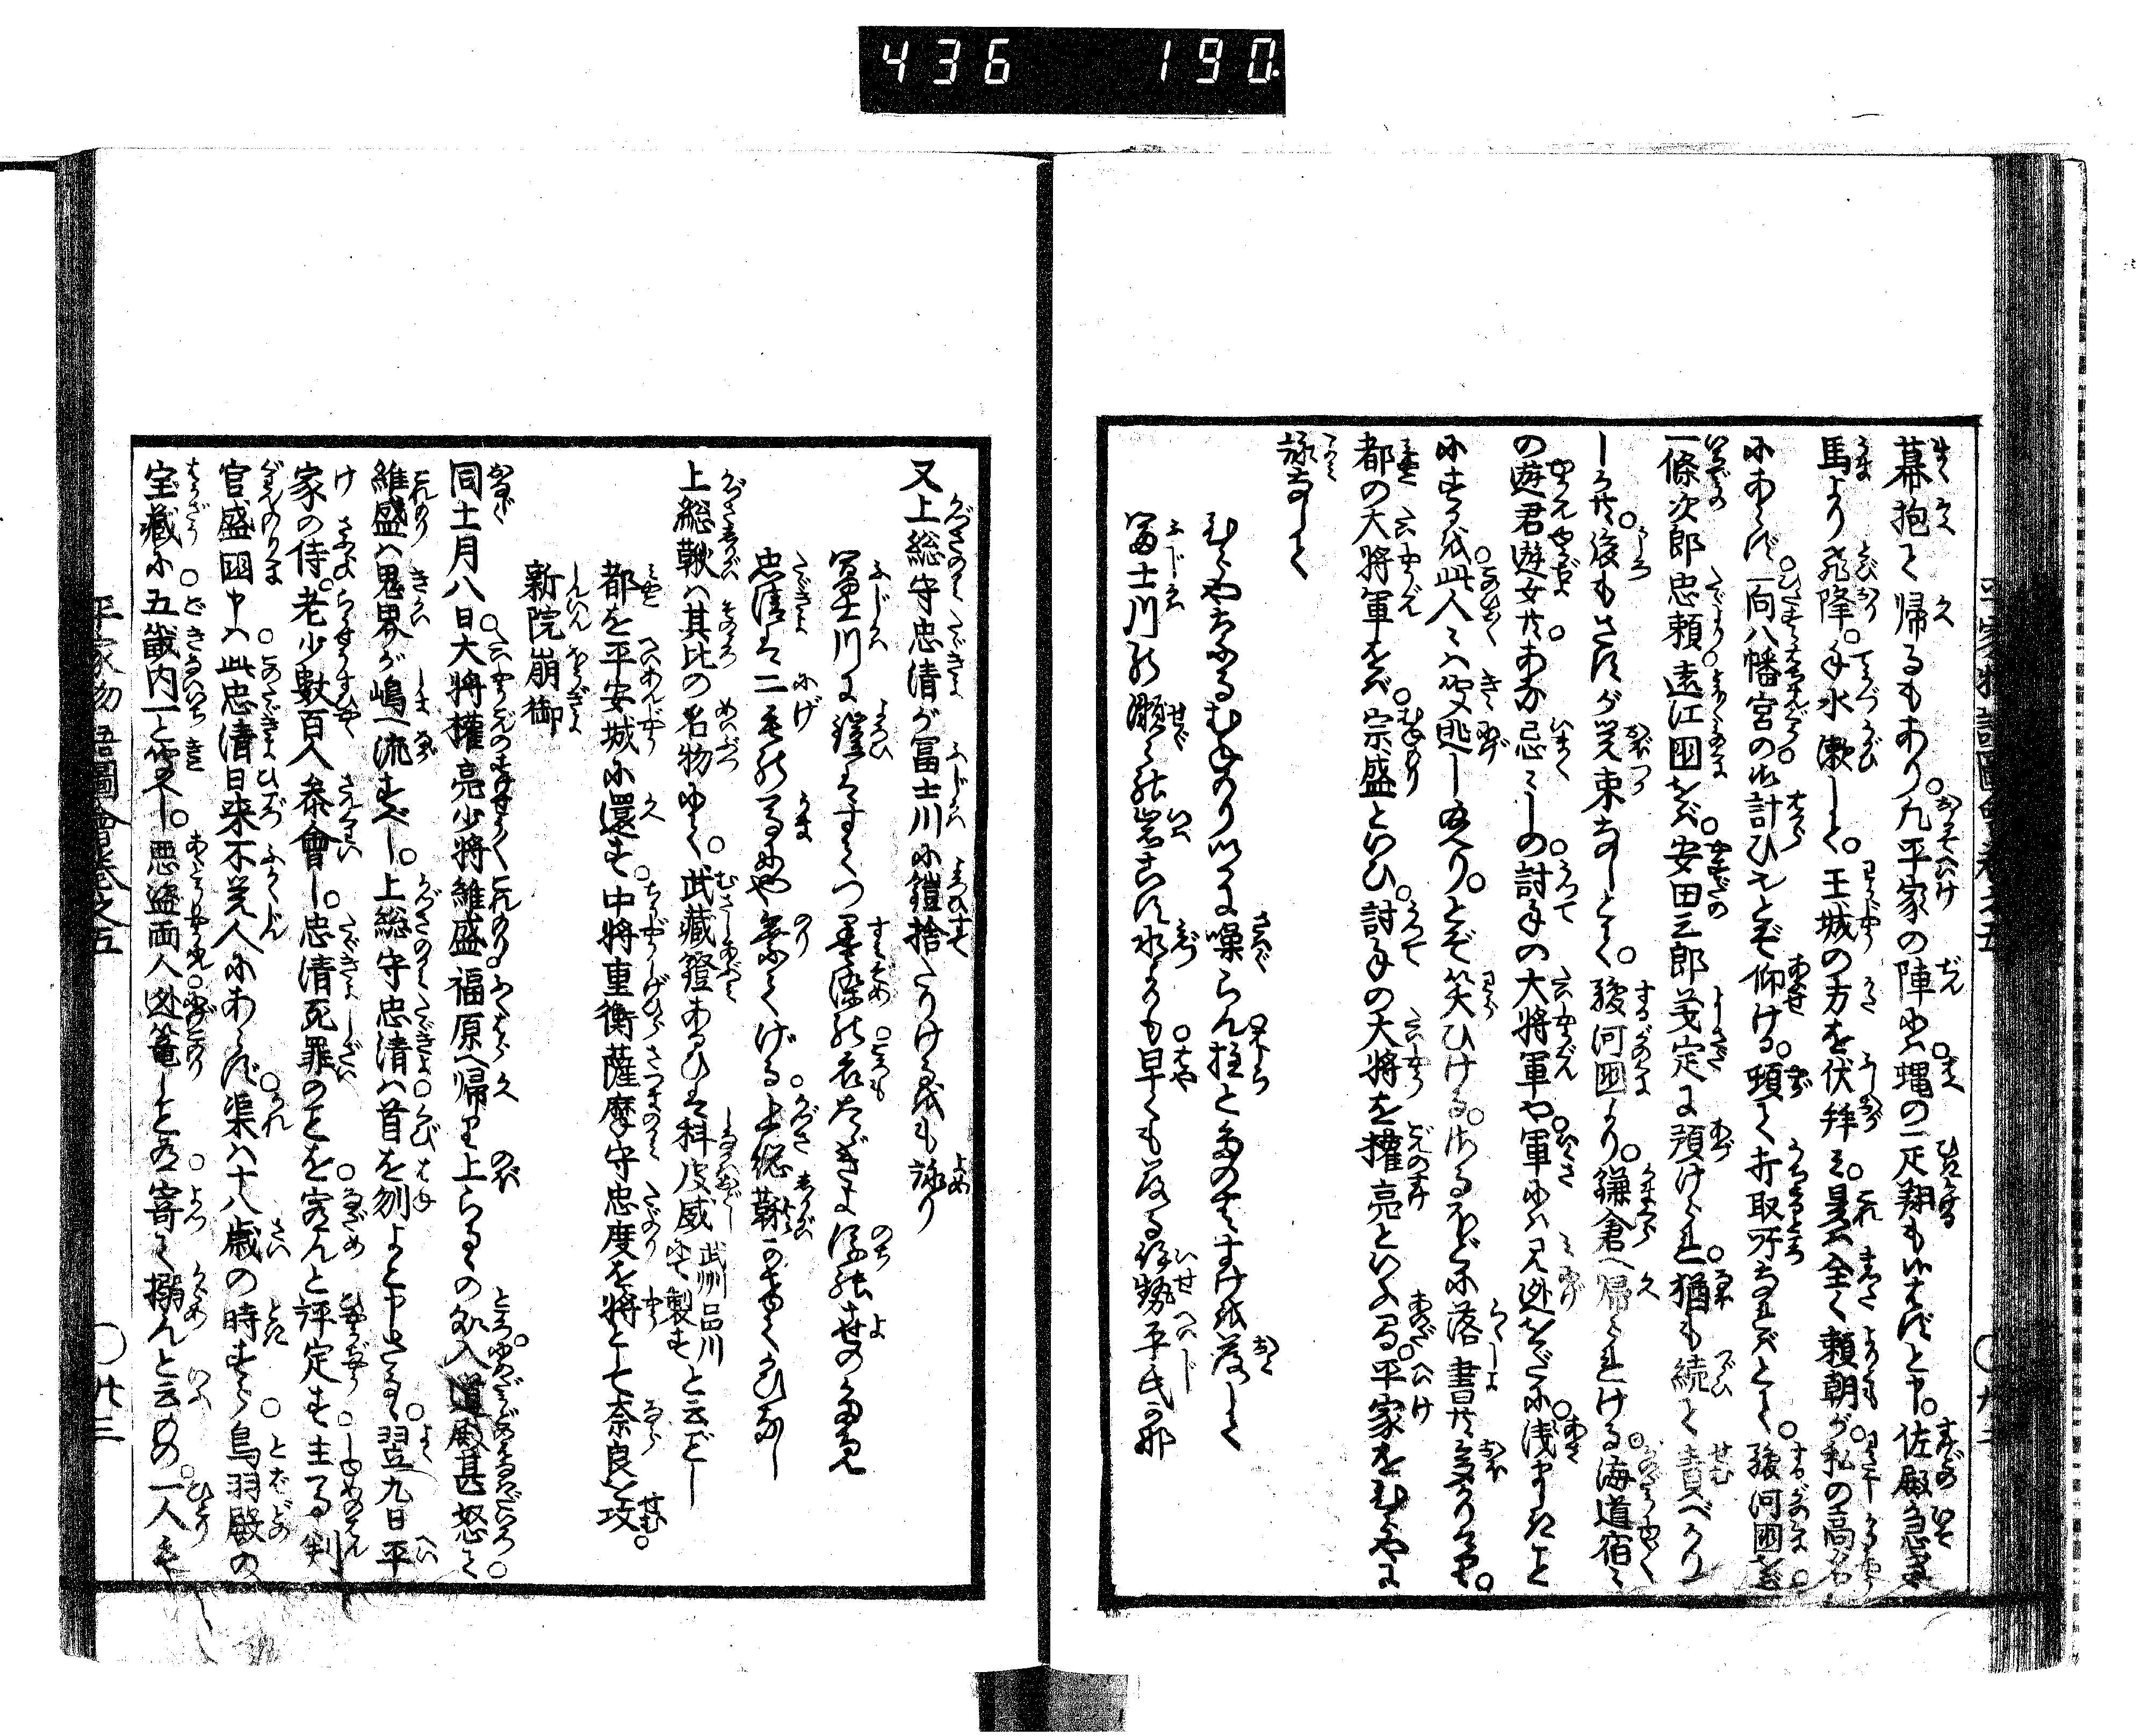 436 190
幕抱て帰るもあり凡平家の陣空蝿の一疋翔もいさずと申佐殿急ぎ
馬より飛降手水漱して王城の方を伏拝み是全く頼朝が私の高名
にあらず一向八幡宮の御計ひなりとぞ仰ける頓て打取所なればとて駿河国をば
一條次郎忠頼遠江国をば安田三郎義定に預けらる猶も続て責べかり
しか共後もさすが覚束なしとて駿河国より鎌倉へ帰られける海道宿々
の遊君遊女共あな忌々しの討手の大将軍や軍には見迯をだに浅ましきこと
にするに此人々は聞迯し給へりとぞ笑ひけるさるほどに落書共多かりけり
都の大将軍をば宗盛といひ討手の大将を権亮といふ間平家をひらやに
詠なして
ひらやなるむねもりいかに噪らん柱とたのむすけを落して
富士川の瀬々の岩こす水よりも早くも落る伊勢平氏かな
又上総守忠清が冨士川に鎧捨たりけるをも詠り
冨士川に鎧はすてつ墨染の衣たゞきよ後の世のため
忠清は二毛の馬にや乗てげる上総鞦かけてかひなし
上総鞦は其比の名物にて武藏鐙あるひは科皮威武州品川にて製すと云がごとし
都を平安城に還す中将重衡薩摩守忠度を将として奈良を攻
新院崩御
同十一月八日大将権亮少将維盛福原へ帰り上らるゝの処入道殿甚怒て
維盛は鬼界が嶋へ流すべし上総守忠清は首を刎よと申さる翌九日平
家の侍老少数百人參會し忠清死罪のことを宥んと評定す主馬判
官盛国申は此忠清日来不覚人にあらず渠は十八歳の時すら鳥羽殿の
宝藏に五畿内一と聞へし悪盗両人迯篭しを寄て搦んと云もの一人も
平家物語圖會巻之五
○廿三